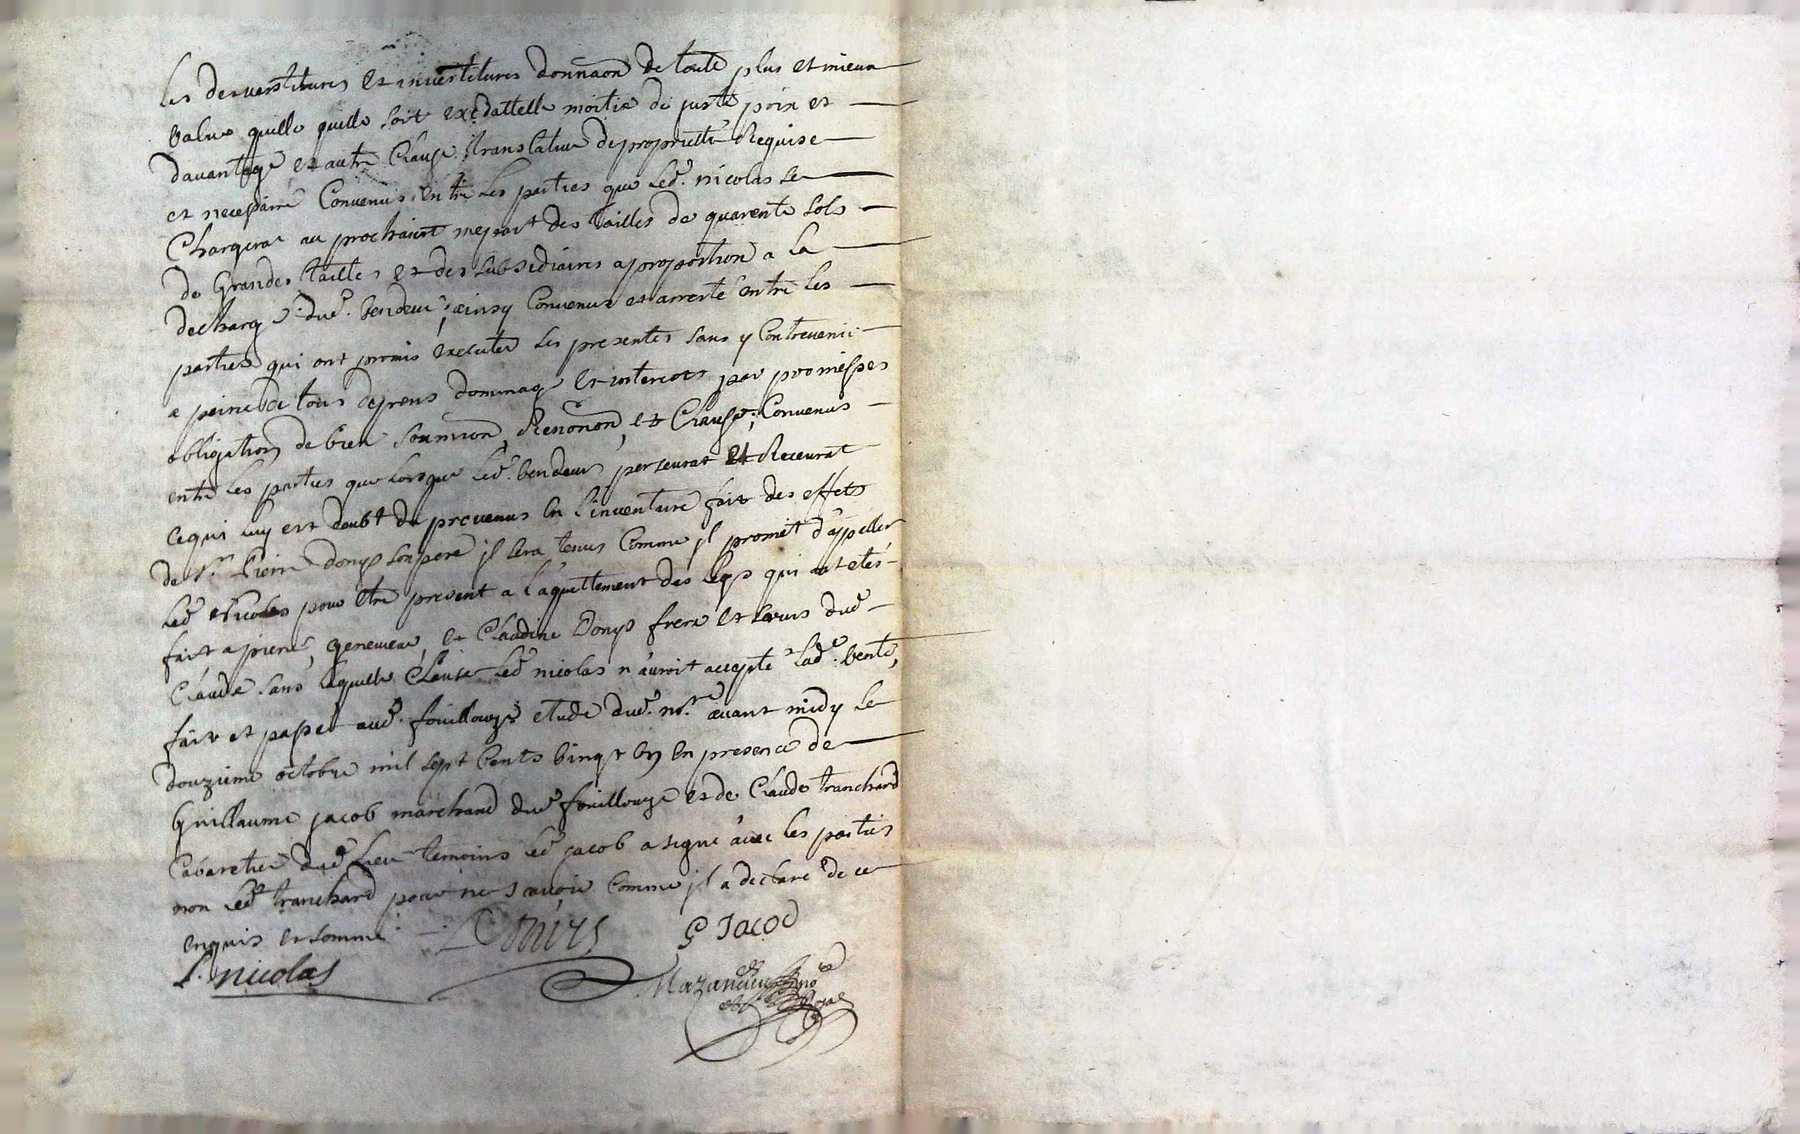 les devestitures et investitures donnaon de toute plus et mieux
value quelle quelle soit exédat elle moitié de juste poix et
davantage et autre Clause translative de proprieté Requise
et necessaire Convenus entre les parties que led. nicolas se
Chargerat au prochaint mepart des tailles de quarente sols
de Grandes tailles et des subsidiaires a proportion a la
decharge dud. vendeur, ainsy Convenus et arresté entre les
parties qui ont promis executer les presentes sans y Contrevenir
a peine de tous depens dommage et interets par promesses
obligation de bien soumion, Renonon, et Clause, Convenus
entre les parties que lorsque led. vendeur persevrat et Recevrat
ce qui luy est deubt de provenus en l'inventaire fait des effets
de sr. Pierre Donys son pere il sera tenus Comme il promet d'appeller
led Nicolas pour etre present a l'aquittement des legs qui ont etés
fait a pierre, genevieve, et Claudine Donys frere et seurs dud
Claude sans laquelle Clause led nicolas n'auroit accepté lad. vente,
fait et passé aud. fouillouze etude dud. nore avant midy le
douzieme octobre mil sept cents vingt un en presence de
Guillaume jacob marchand dud fouillouze et de Claude tranchard
Cabaretier dud lieu temoins led jacob a signé avec les parties
non led tranchard pour ne scavoir Comme il a declaré de ce
enquis et sommé
Donys G Jacod
nicolas